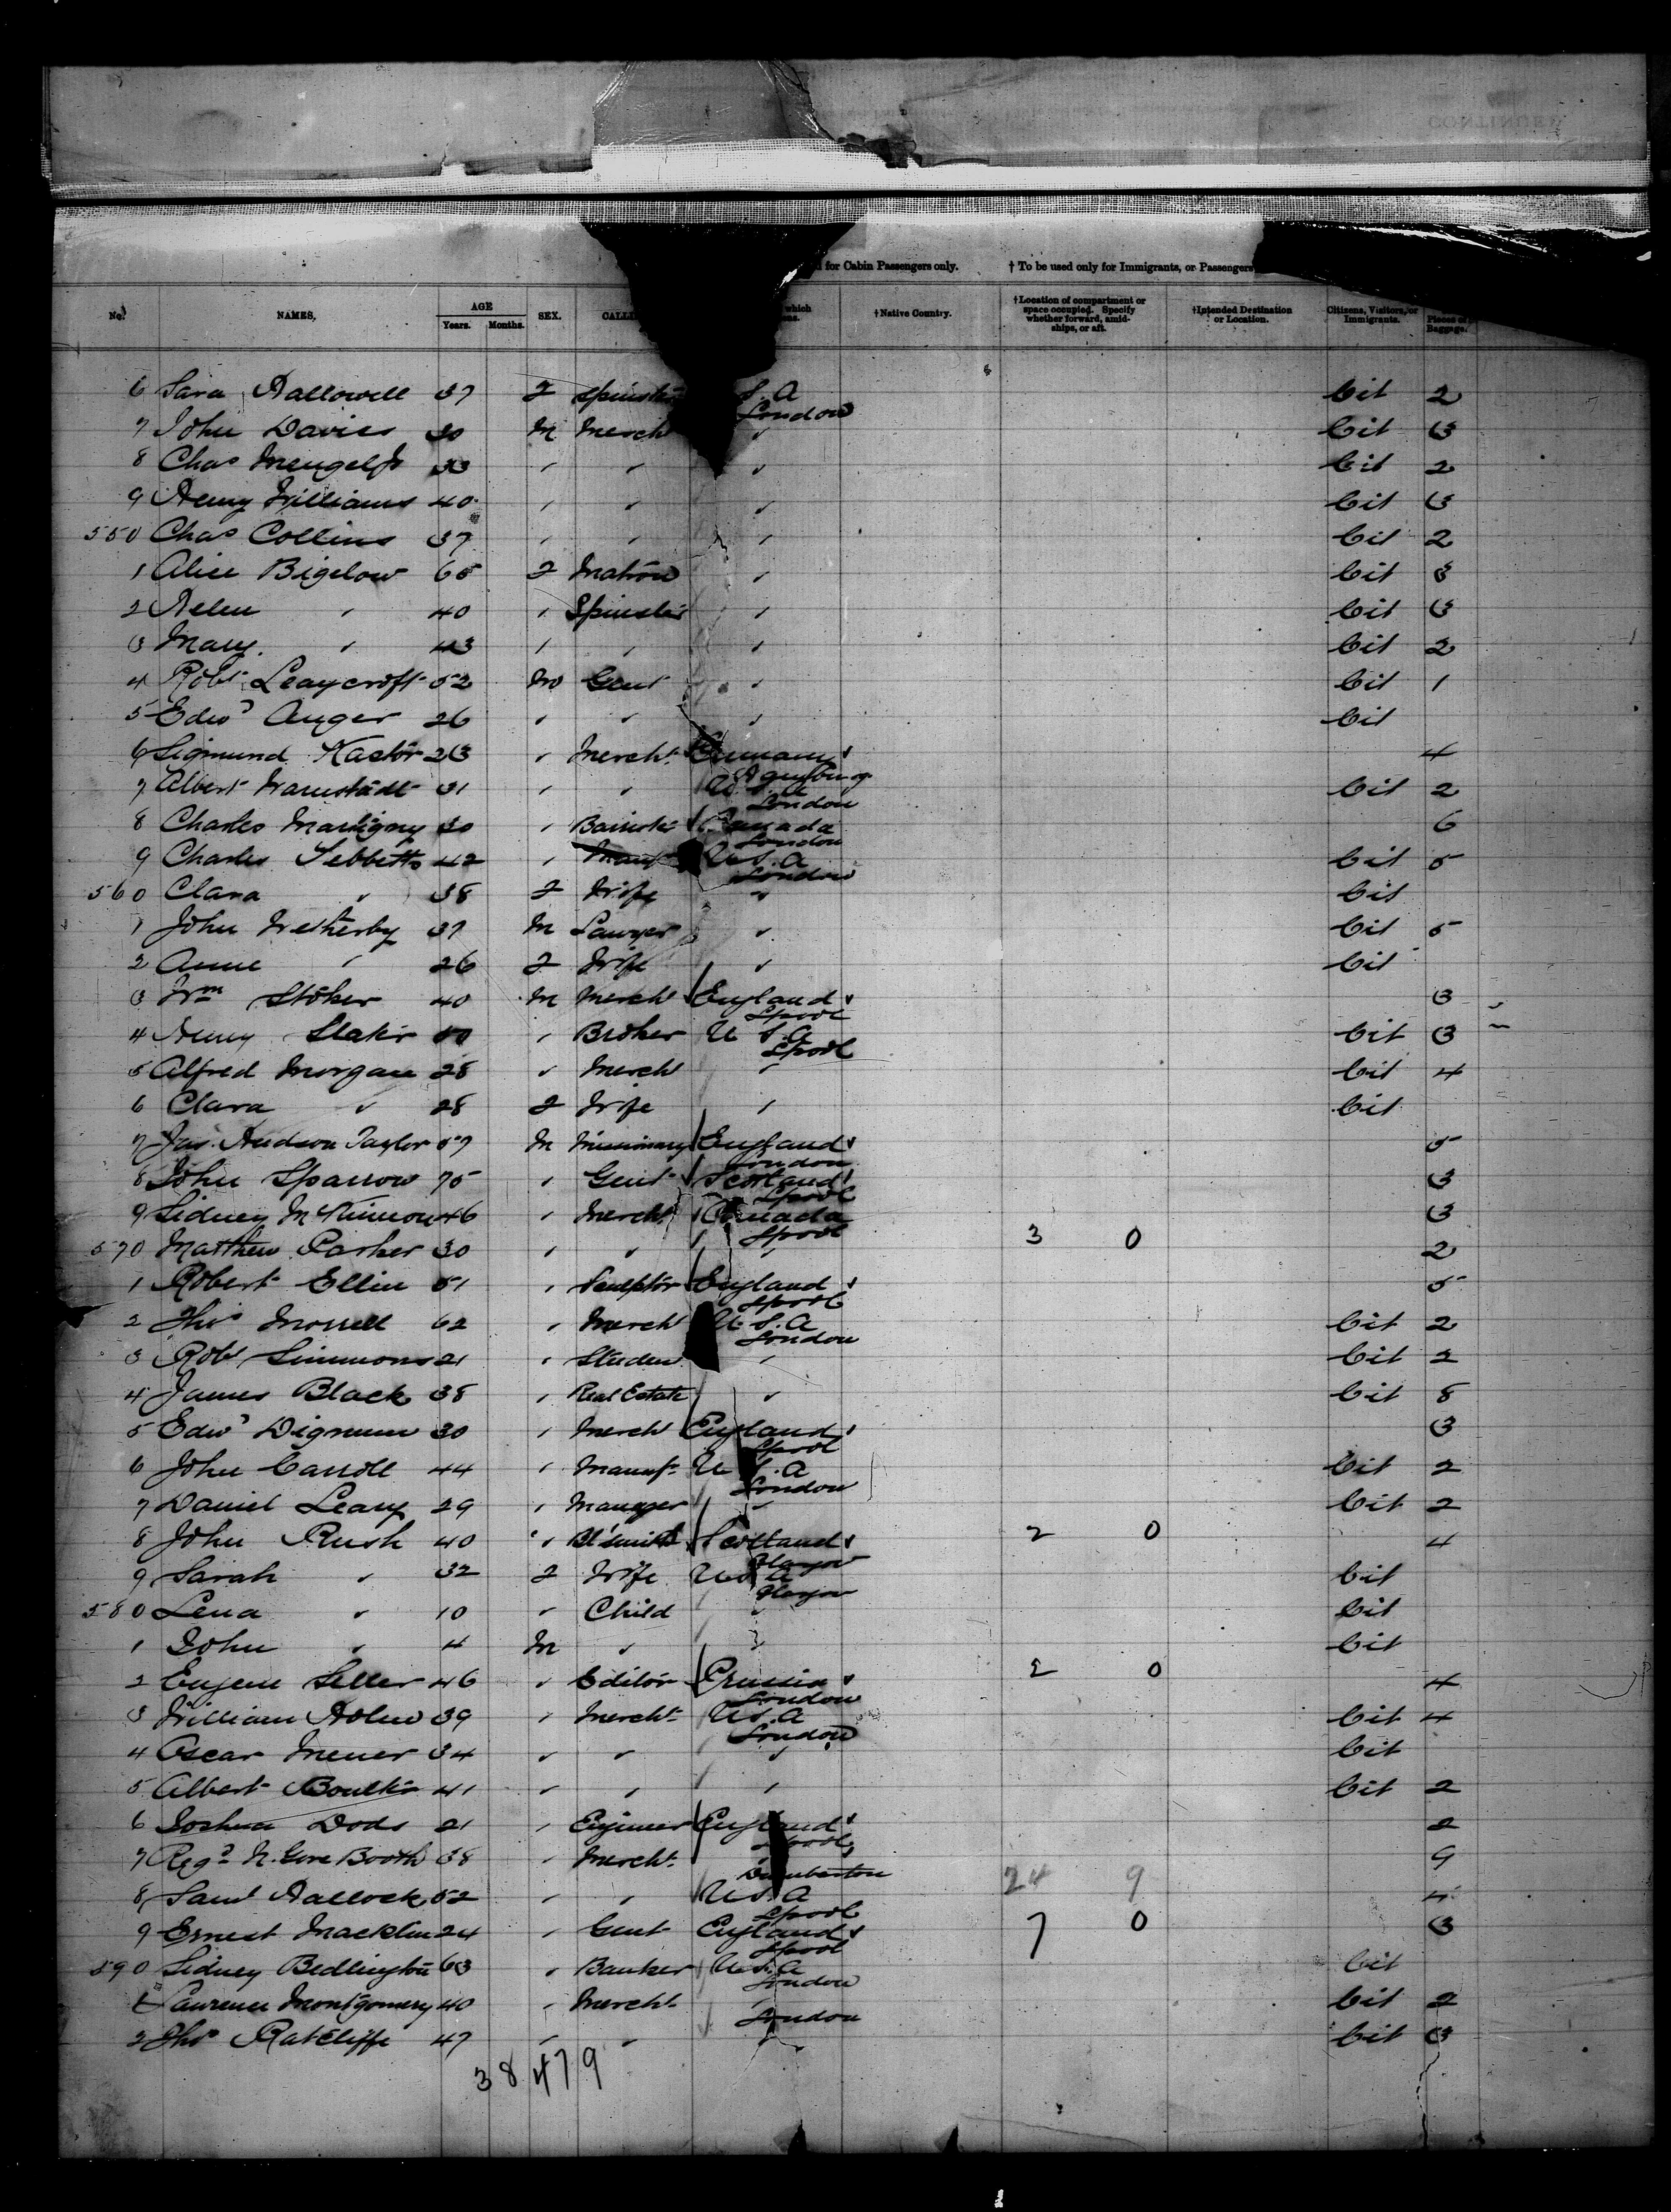 CONTINUED
d for Cabin Passengers only. † To be used only for Immigrants, or Passengers
No. NAMES. AGE Years. Months. SEX. CALLI which †Native Country. †Location of compartment or space occupied. Specify whether forward, amidships, or aft. †Intended Destination or Location. Citizens, Visitors, or Immigrants. Pieces of Baggage.
6 Sara Hallowell 37 F Spinster S. A Cit 2
London
7 John Davies 30 M Merch " Cit 3
8 Chas Mengel Jr 33 " " " Cit 2
9 Henry Williams 40 " " " Cit 3
550 Chas Collins 37 " " " Cit 2
1 Alice Bigelow 65 F Matron " Cit 3
2 Helen " 40 " Spinster " Cit 3
3 Mary " 43 " " " Cit 2
4 Robt Leaycroft 52 M Gent " Cit 1
5 Edwd Auger 26 " " " Cit
6 Sigmund Kastor 23 " Mercht Germany 4
7 Albert 31 " " U.S.A Cit 2
London
8 Charles Martigny 30 " Barrister Canada 6
London
9 Charles Tebbetts 42 " U.S.A Cit 5
London
560 Clara " 38 F Wife " Cit
1 John Wetherby 37 M Lawyer " Cit 5
2 Anne " 26 F Wife " Cit
3 Wm Stoker 40 M Mercht England 3
Lpool
4 Henry Slater 50 " Broker U S.A Cit 3
Lpool
5 Alfred Morgan 28 " Mercht " Cit 4
6 Clara " 28 F Wife " Cit
7 Jas. Hudson Taylor 57 M Missionary England 5
London
8 John Sparrow 75 " Gent Scotland 3
Lpool
9 Sidney McKinnon 46 " Mercht Canada 3
Lpool
570 Matthew Parker 30 " " " 3 0 2
1 Robert Ellin 51 " Sculptor England 5
Lpool
2 Thos Morrell 62 " Mercht U.S.A Cit 2
London
3 Robt Simmons 21 " Studen " Cit 2
4 James Black 38 " Real Estate " Cit 8
5 Edwd Dignum 30 " Mercht England 3
Lpool
6 John Carroll 44 " Manufr U S.A Cit 2
London
7 Daniel Leary 29 " Manager " Cit 2
8 John Rush 40 " Bl'smith Scotland 2 0 4
Glasgow
9 Sarah " 32 F Wife U.S A Cit
Glasgow
580 Lena " 10 " Child " Cit
1 John " 4 M " " Cit
2 Eugene Seller 46 " Editor Prussia 2 0 4
London
3 William Holm 39 " Mercht U.S.A Cit 4
London
4 Oscar Meuer 34 " " " Cit
5 Albert Boulter 41 " " " Cit 2
6 Joshua Dods 21 " Engineer England 2
Lpool
7 Regd N. Gore Booth 38 " Mercht " 9
Dumbarton
8 Saml Hallock 52 " " U.S.A 24 9 4
Lpool
9 Ernest Macklin 24 " Gent England 7 0 3
Lpool
590 Sidney Bedlington 63 " Banker U.S.A Cit
London
1 Laurence Montgomery 40 " Mercht " Cit 2
London
2 Thos Ratcliffe 47 " " " Cit 3
38 479